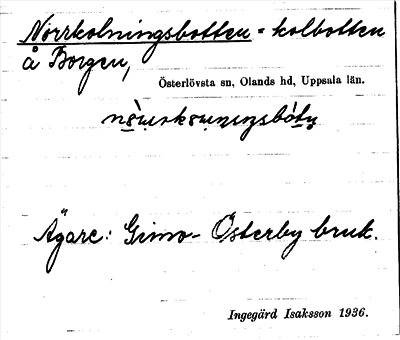 Norrkolningsbotten = kolbotten
å Borgen,
Österlövsta sn, Olands hd, Uppsala län.
Ägare: Gimo-Österby bruk.
Ingegärd Isaksson 1936.